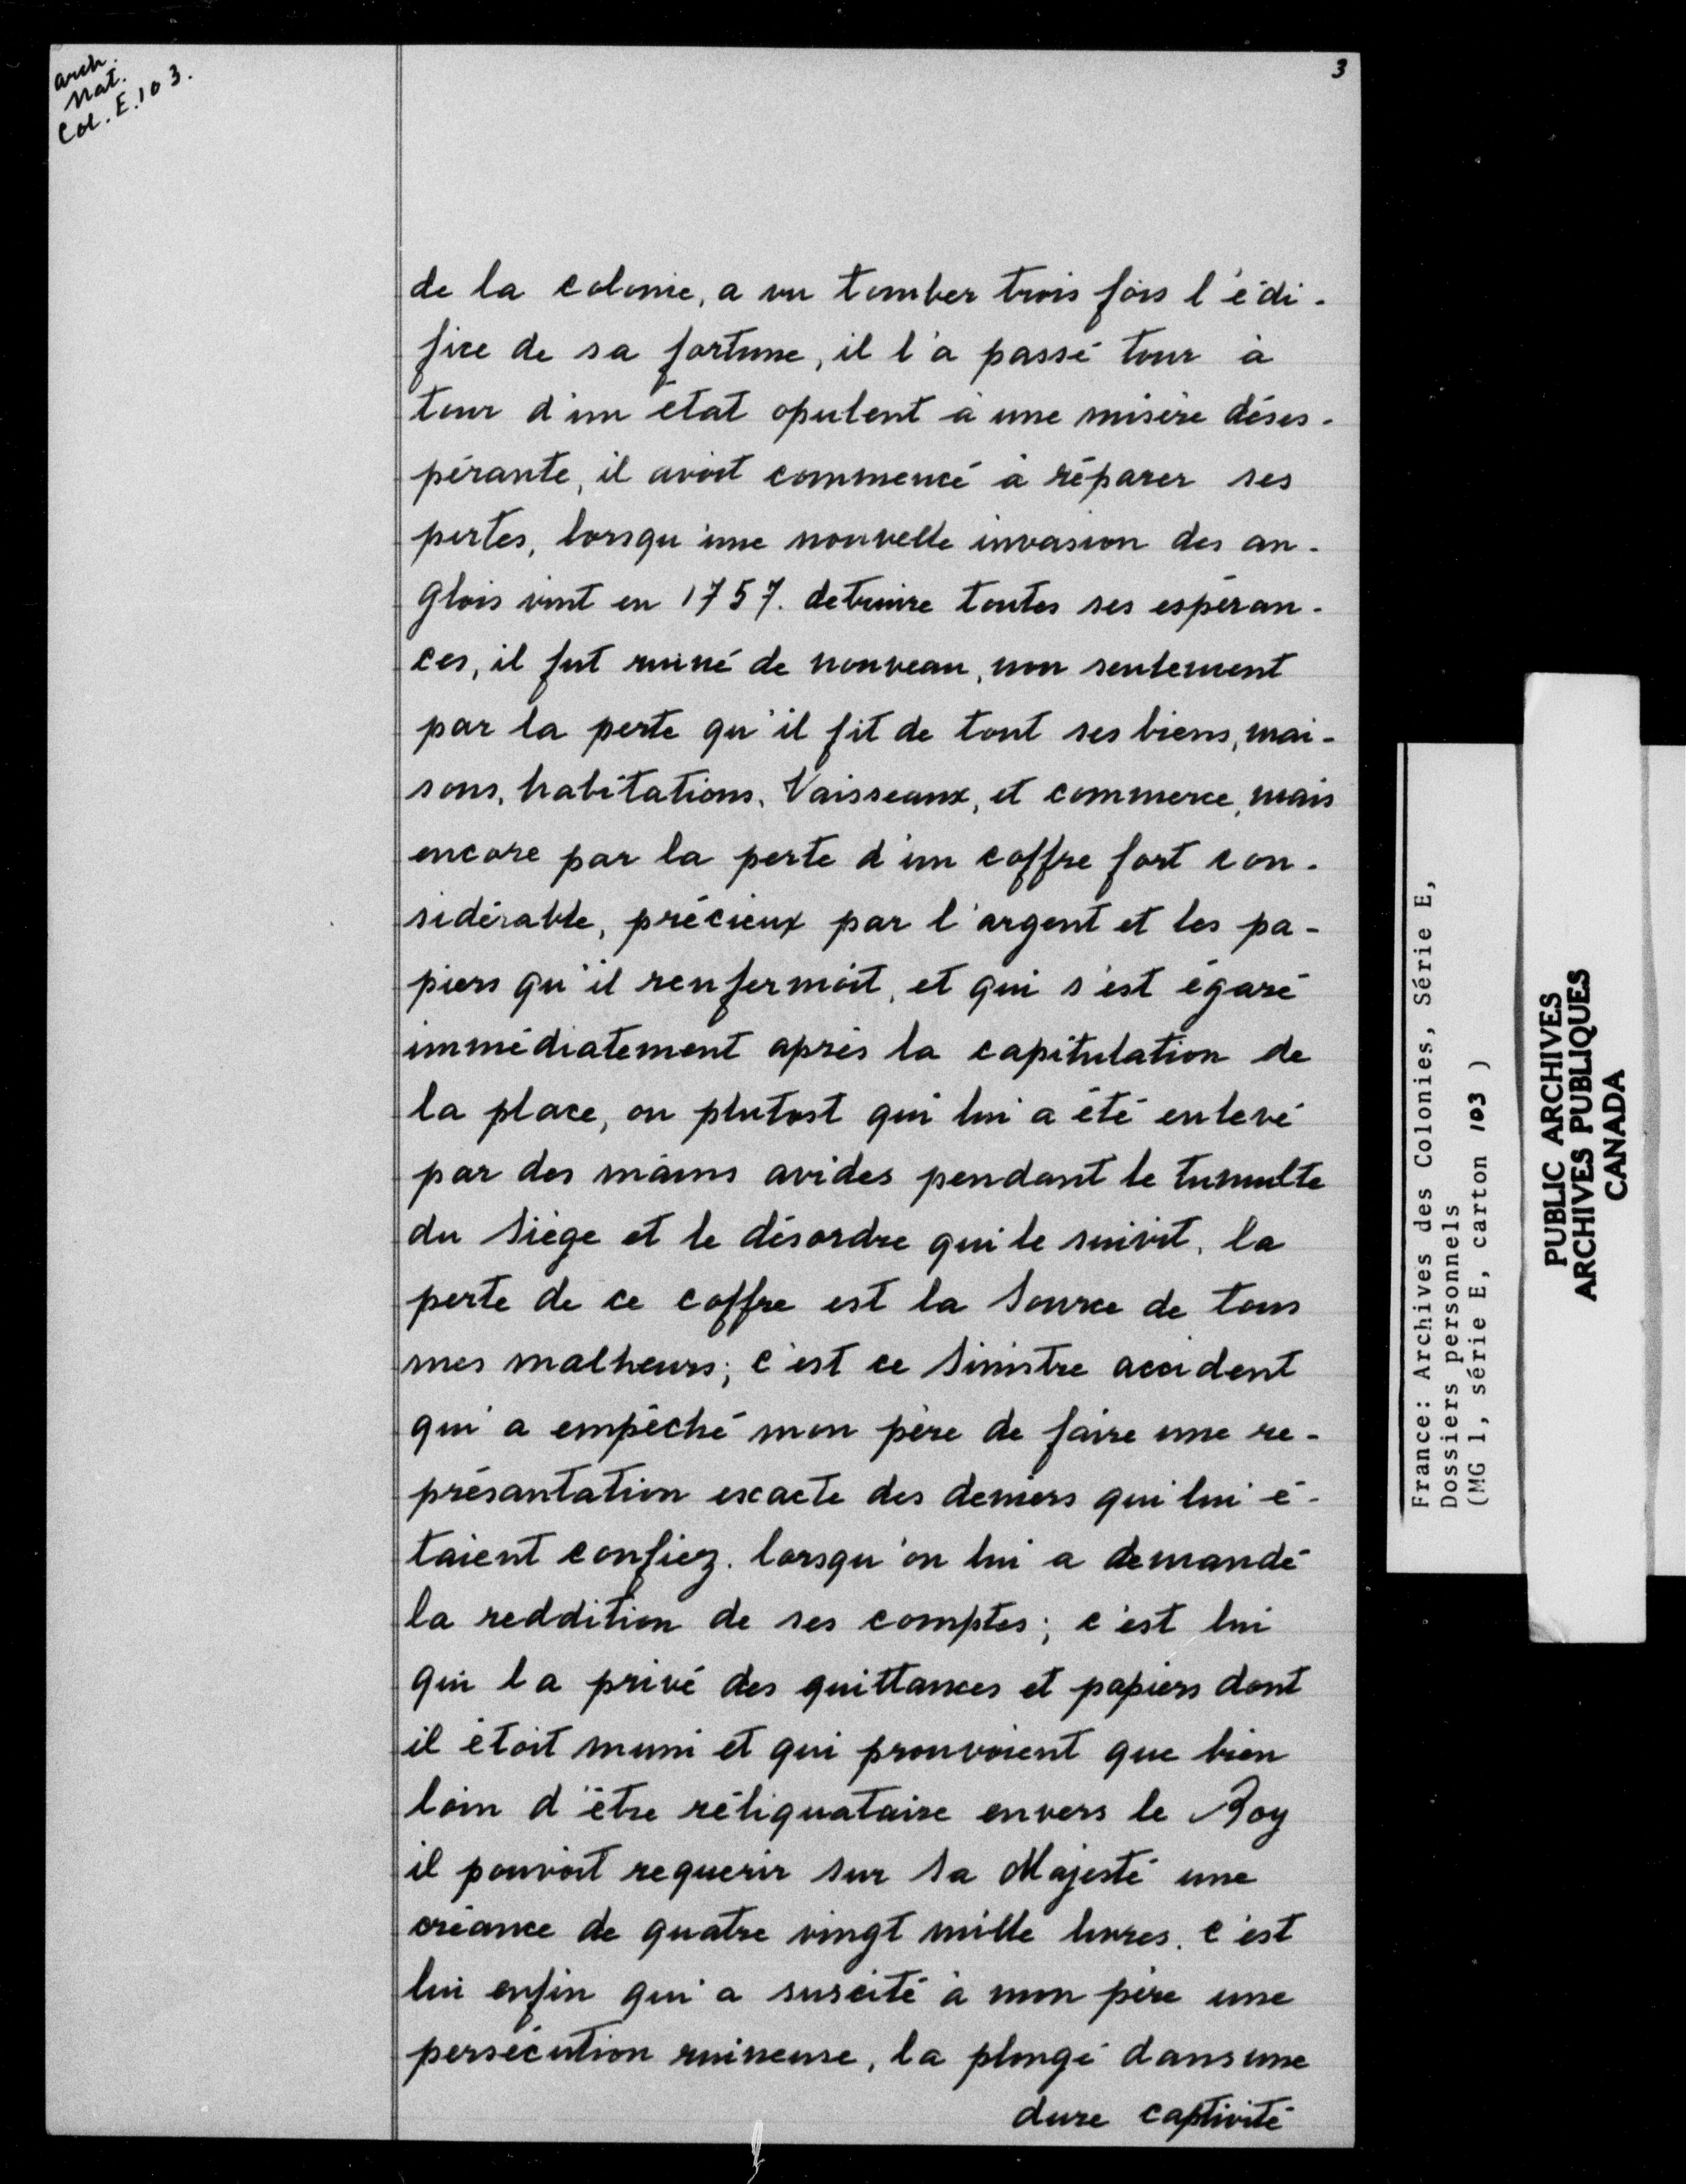 arch.
Nat.
Col. E. 103.
3
de la colonie, a vu tomber trois fois l'édi-
fice de sa fortune, il l'a passé tour à
tour d'un état opulent à une misère déses-
pérante, il avoit commencé à réparer ses
pertes, lorsqu'une nouvelle invasion des an-
glois vint en 1757. detruire toutes ses espéran-
ces, il fut ruiné de nouveau, non seulement
par la perte qu'il fit de tout ses biens, mai-
sons, habitations, Vaisseaux, et commerce, mais
encore par la perte d'un coffre fort con-
sidérable, précieux par l'argent et les pa-
piers qu'il renfermoit, et qui s'est égaré
immédiatement après la capitulation de
la place, ou plutost qui lui a été enlevé
par des mains avides pendant le tumulte
du Siège et le désordre qui le suivit, la
perte de ce coffre est la Source de tous
mes malheurs; c'est ce Sinistre accident
qui a empêché mon père de faire une re-
présantation exacte des deniers qui lui é-
taient confiez. lorsqu'on lui a demandé
la reddition de ses comptes; c'est lui
qui la privé des quittances et papiers dont
il étoit muni et qui prouvoient que bien
loin d'être réliquataire envers le Roy
il pouvoit requerir sur Sa Majesté une
créance de quatre vingt mille livres. c'est
lui enfin qui a suscité à mon père une
persécution ruineuse, la plongé dans une
dure captivité
France: Archives des Colonies, Série E,
Dossiers personnels
(MG 1, série E, carton 103 )
PUBLIC ARCHIVES
ARCHIVES PUBLIQUES
CANADA